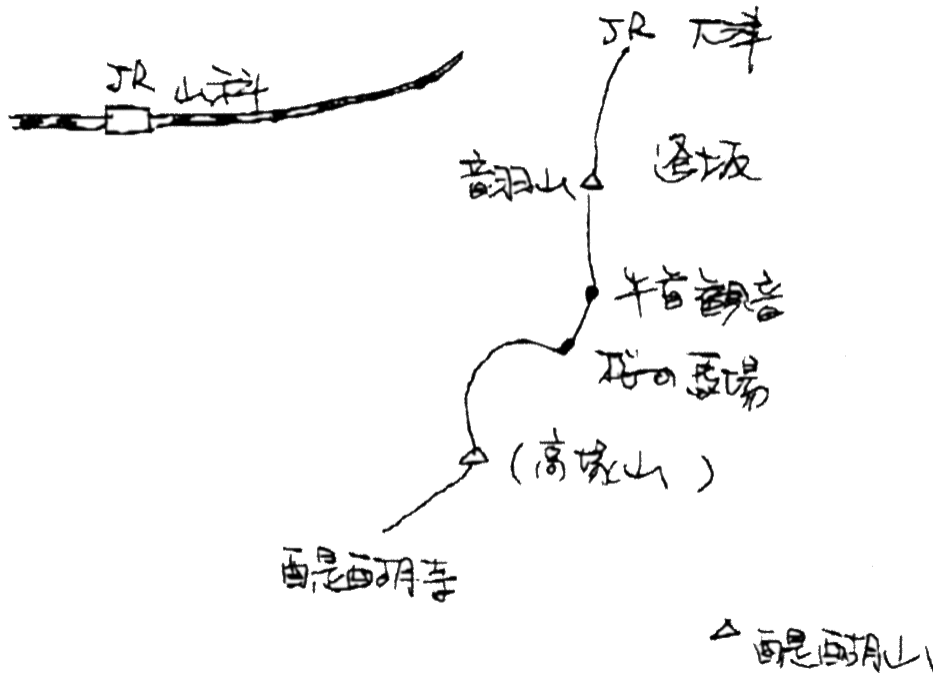 JR 大津
JR 山科
音羽山
逢坂
牛首観音
桜の馬場
(高塚山)
醍醐寺
醍醐山